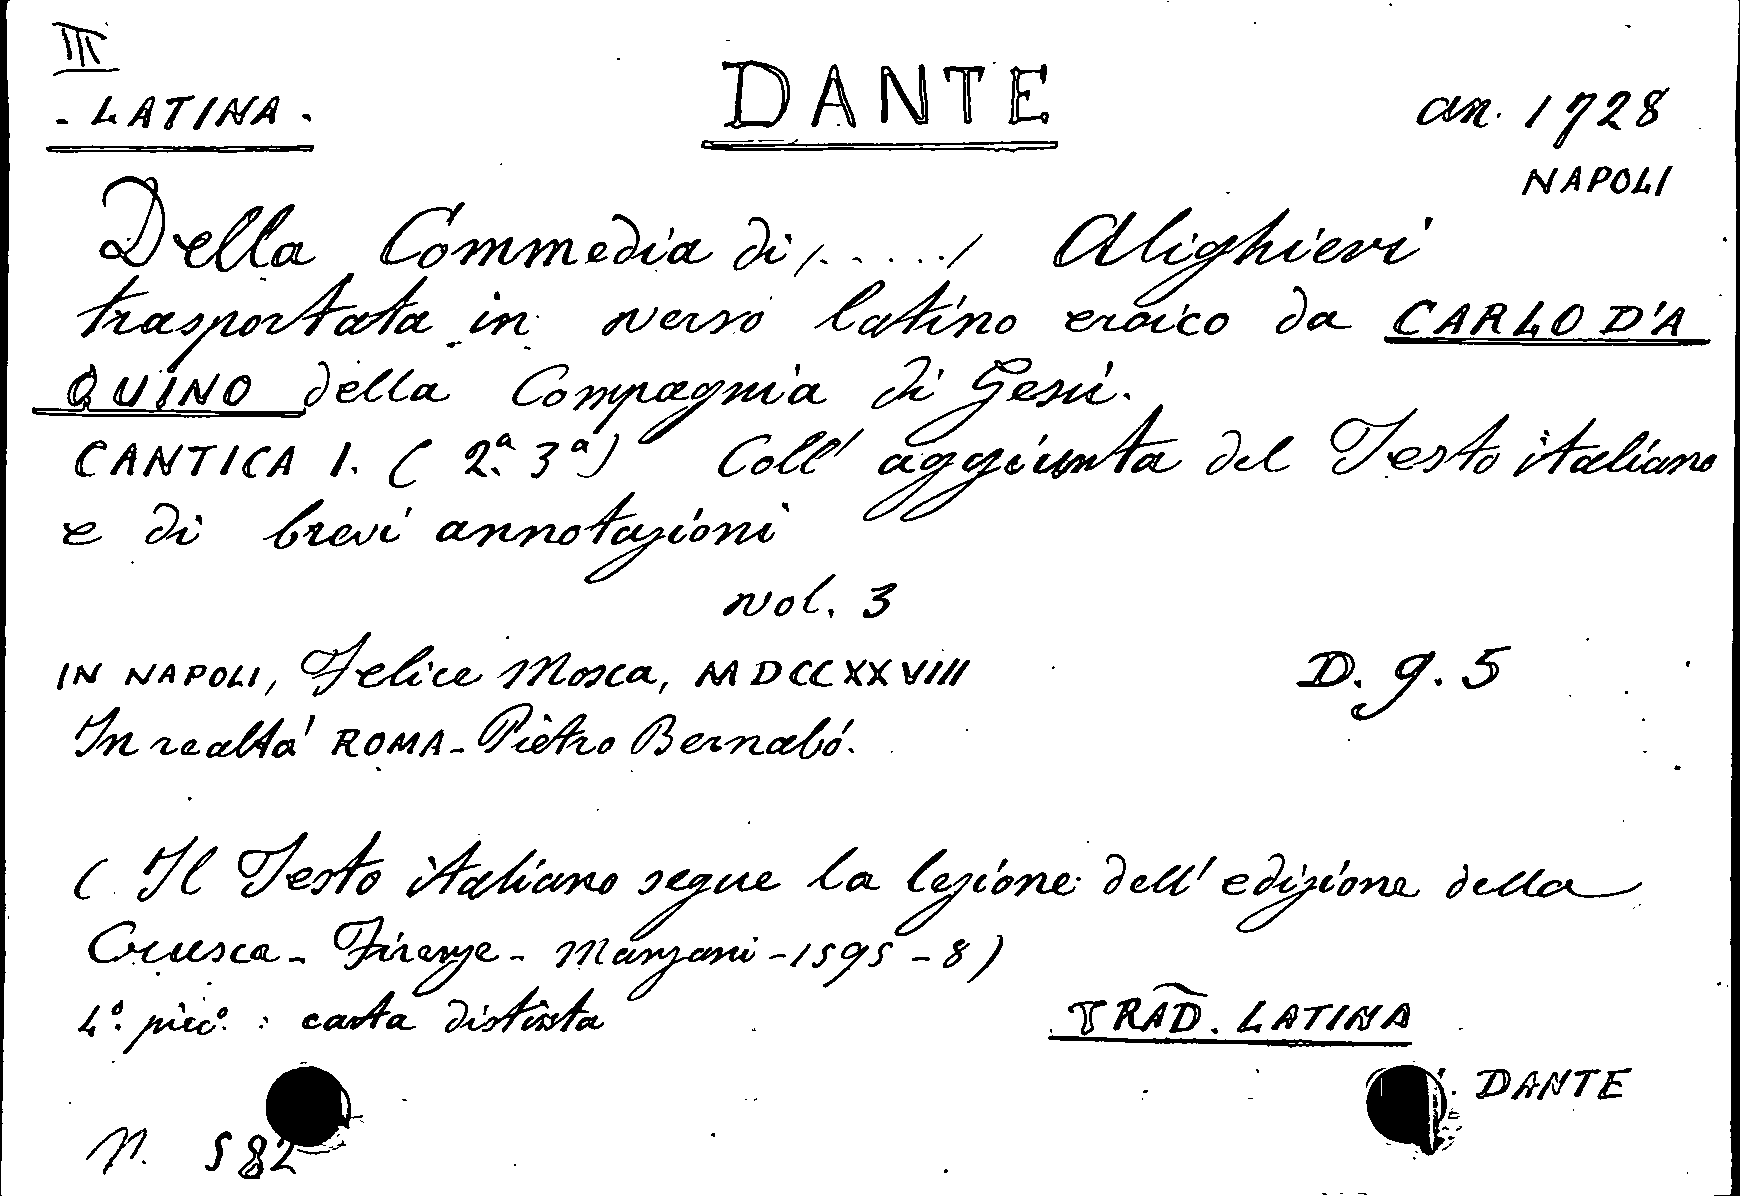 III
- LATINA -
DANTE
an. 1728
NAPOLI
Della Commedia di /. . . . ./ Alighieri
trasportata in verso latino eroico da CARLO D'A
QUINO della Compagnia di Gesù.
CANTICA 1. ( 2ª. 3ª) Coll' aggiunta del Testo italiano
e di brevi annotazioni
vol. 3
IN NAPOLI, Felice Mosca, MDCCXXVIII
D. g. 5
In realtà ROMA - Pietro Bernabó.
( Il Testo italiano segue la lezione dell' edizione della
Crusca - Firenze - Manzani - 1595 - 8 )
4º. picº. : carta distinta
TRAD. LATINA
DANTE
N. 582